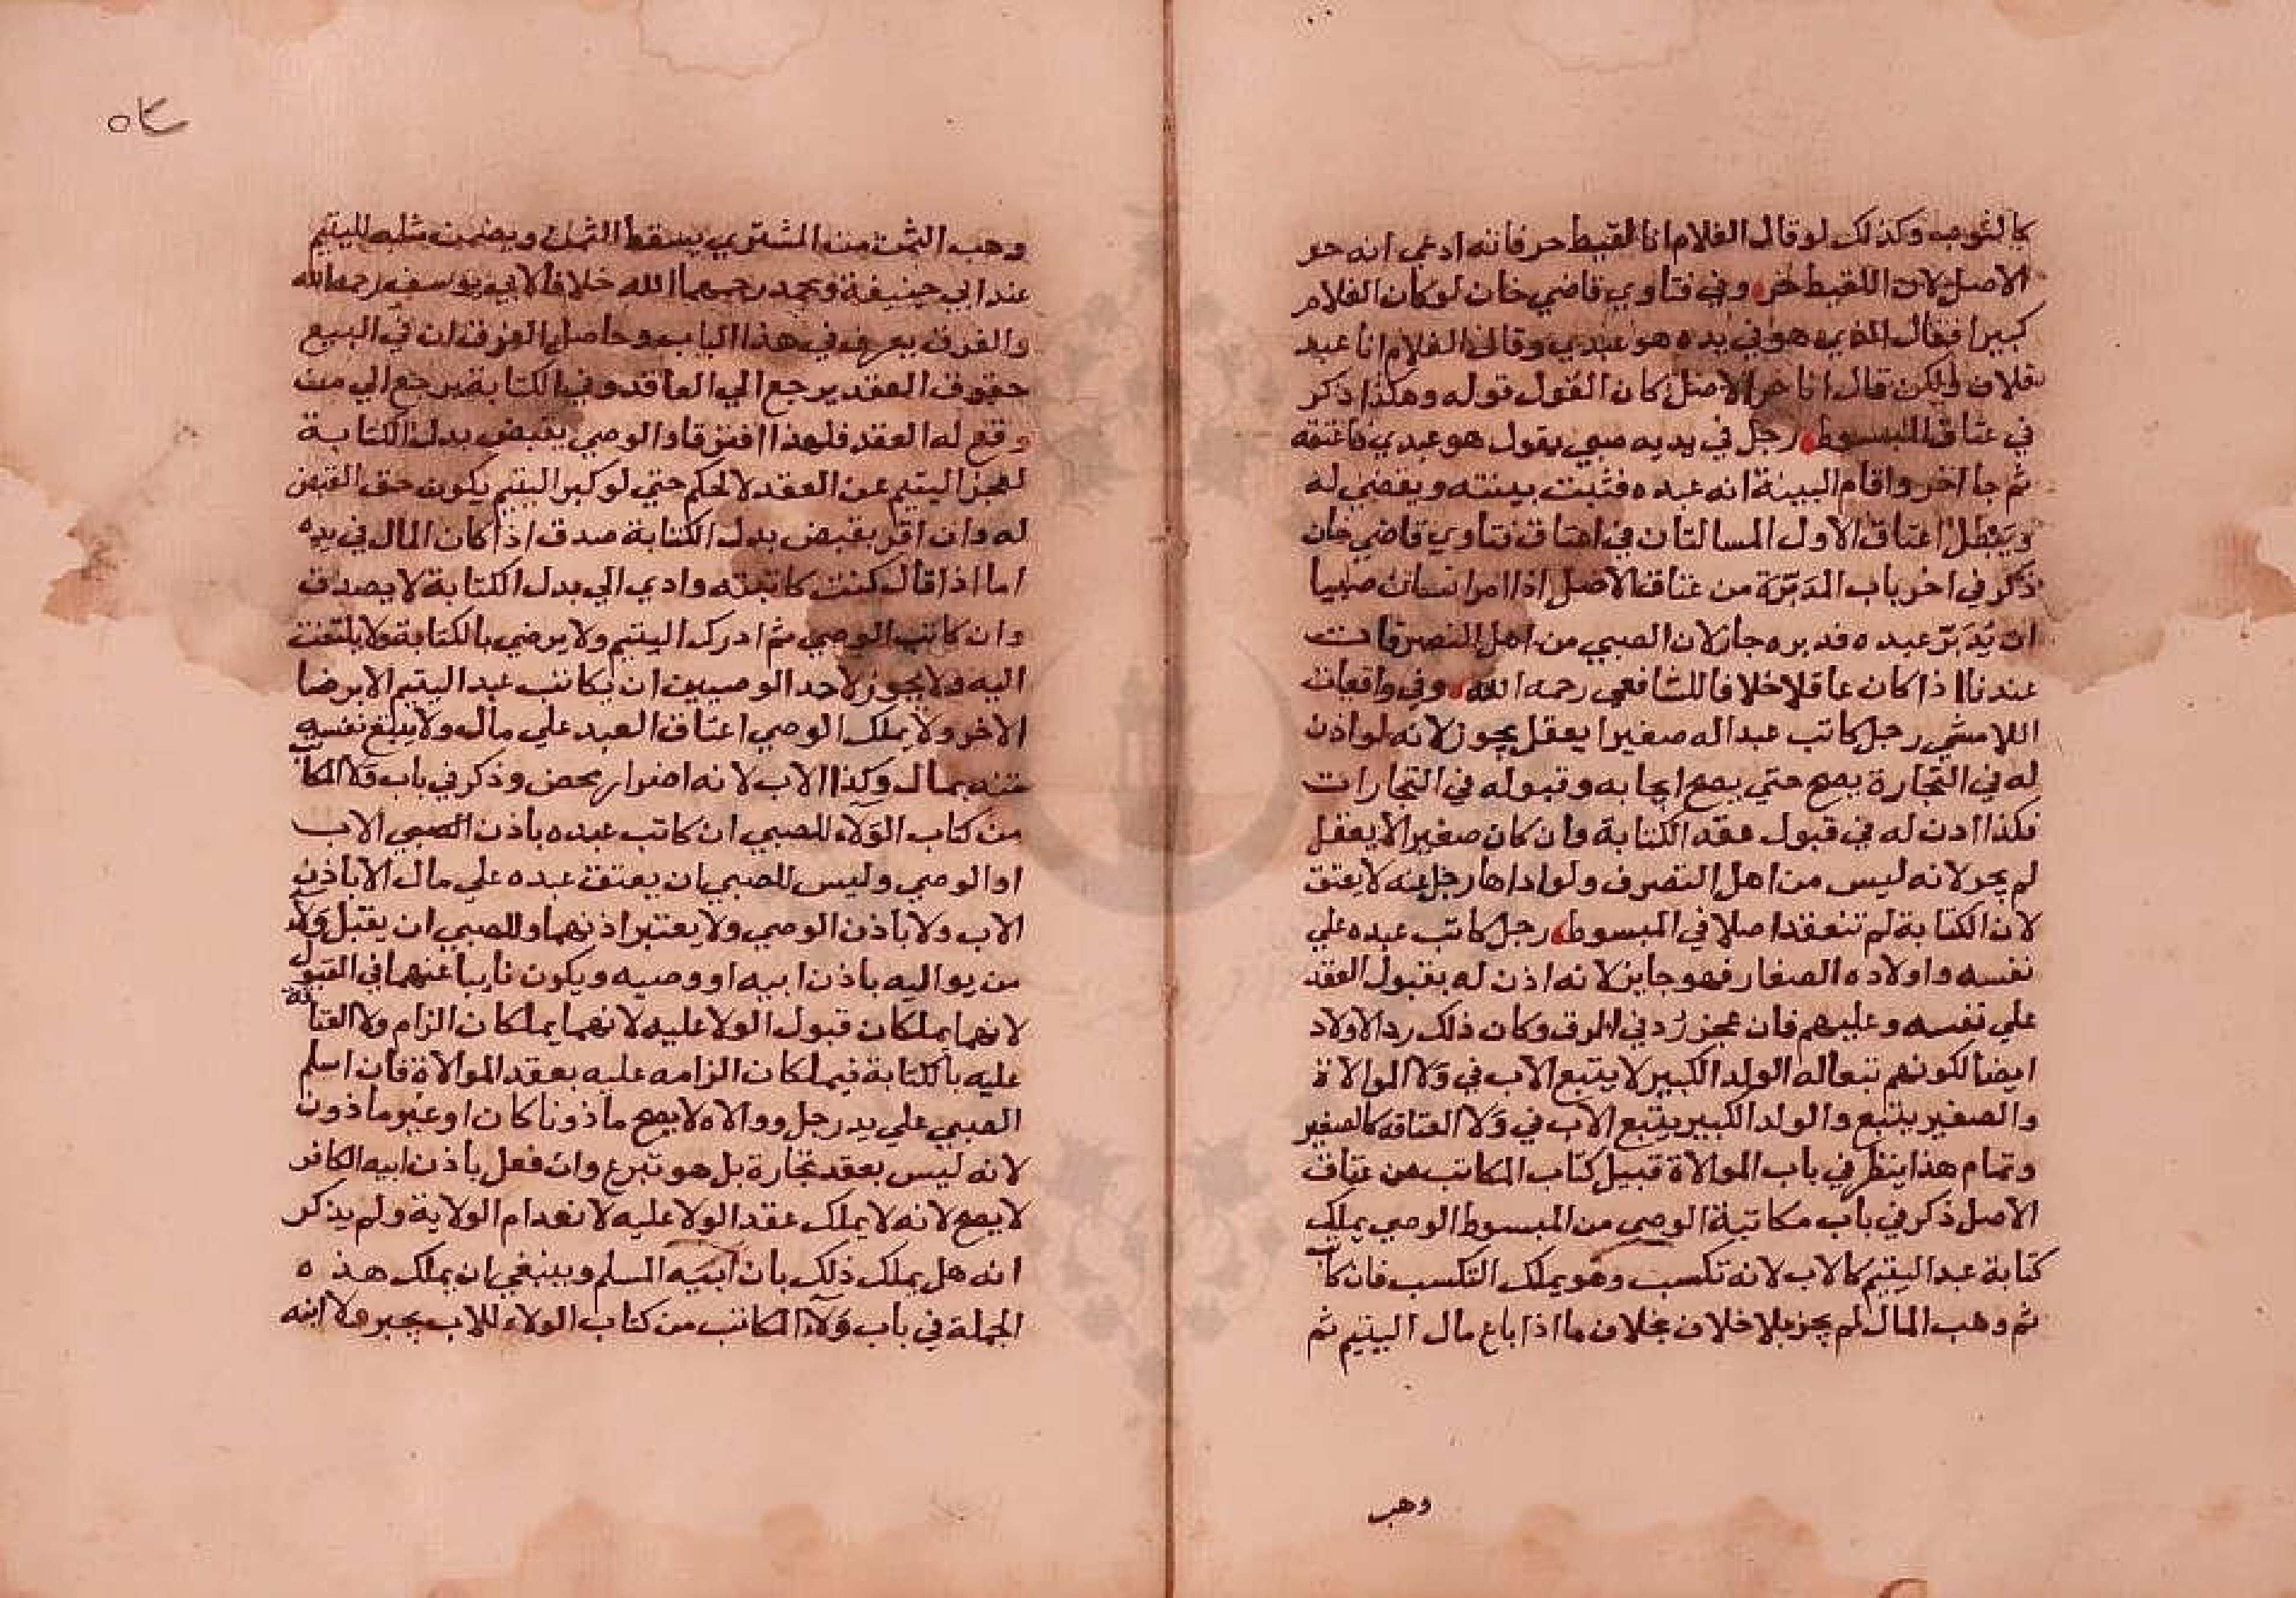 كالثوب وكذلك لو قال الغلام انا لقيط حر فانه ادعي انه حر
الاصل لان اللقيط حر وفي فتاوي قاضي خان لو كان الغلام
كبيرا فقال الذي هو في يده هو عبدي وقال الغلام انا عبد
فلان ولكن قال انا حر الاصل كان القول قوله وهكذا ذكر
في عتاق المبسوط رجل في يديه صبي يقول هو عبدي فاعتقه
ثم جا اخر واقام البينة انه عبده فثبت بينته ويقضي له
ويبطل اعتاق الاول المسالتان في اعتاق فتاوي قاضي خان
ذكر في اخر باب المدبرة من عتاق الاصل اذا امر انسان صبيا
ان يُدَبّر عبده فدبره جاز لان الصبي من اهل التصرفات
عندنا اذا كان عاقلا خلافا للشافعي رحمه الله وفي واقعات
اللامشي رجل كاتب عبدا له صغيرا يعقل يجوز لانه لو اذن
له في التجارة يصح حتي يصح ايجابه وقبوله في التجارات
فكذا اذن له في قبول عقد الكتابة وان كان صغيرا لا يعقل
لم يجز لانه ليس من اهل التصرف ولو اداها رجل عنه لا يعتق
لان الكتابة لم تنعقد اصلا في المبسوط رجل كاتب عبده علي
نفسه واولاده الصغار فهو جايز لانه اذن له بقبول العقد
علي نفسه وعليهم فان عجز رُد في الرق وكان ذلك رد الاولاد
ايضا لكونهم تبعا له الولد الكبير لا يتبع الاب في وَلا الموالاة
والصغير يتبع والولد الكبير يتبع الاب في وَلا العتاقة كالصغير
وتمام هذا ينظر في باب الموالاة قبيل كتاب المكاتب من عتاق
الاصل ذكر في باب مكاتبة الوصي من المبسوط الوصي يملك
كتابة عبد اليتيم كالاب لانه تكسب وهو يملك التكسب فان كاتب
ثم وهب المال لم يجز بلا خلاف بخلاف ما اذا باع مال اليتيم ثم
وهب
وهب الثمن من المشتري يسقط الثمن ويضمن مثله لليتيم
عند ابي حنيفة ومحمد رحمهما الله خلافا لابي يوسف رحمه الله
والفرق يعرف في هذا الباب وحاصل الفرق ان في البيع
حقوق العقد يرجع الي العاقد وفي الكتابة يرجع الي من
وقع له العقد فلهذا افترقا والوصي يقبض بدل الكتابة
لعجز اليتيم عن العقد لا لحكم حتي لو كبر اليتيم يكون حق القبض
له وان اقر بقبض بدل الكتابة صدق اذا كان المال في يده
اما اذا قال كنت كاتبته وادي الي بدل الكتابة لا يصدق
وان كاتب الوصي ثم ادرك اليتيم ولا يرضي بالكتابة لا يلتفت
اليه ولا يجوز لاحد الوصيين ان يكاتب عبد اليتيم الا برضا
الاخر ولا يملك الوصي اعتاق العبد علي ماله ولا يبيع نفسه
منه بمال وكذا الاب لانه اضرار محض وذكر في باب وَلا المكاتب
من كتاب الوَلاء للصبي ان كاتب عبده باذن الصبي الاب
او الوصي وليس للصبي ان يعتق عبده علي مال الا باذن
الاب ولا باذن الوصي ولا يعتبر اذنهما وللصبي ان يقبل وَلا
من يواليه باذن ابيه او وصيه ويكون نايبا عنهما في القبول
لانهما يملكان قبول الولا عليه لانهما يملكان الزام ولا العتاقة
عليه بالكتابة فيملكان الزامه عليه بعقد الموالاة فان اسلم
الصبي علي يد رجل ووالاه لا يصح ماذونا كان او غير ماذون
لانه ليس بعقد تجارة بل هو تبرع وان فعل باذن ابيه الكافر
لا يصح لانه لا يملك عقد الولا عليه لانعدام الولاية ولم يذكر
انه هل يملك ذلك باذن ابيه المسلم وينبغي ان يملك هذه
الجملة في باب وَلاء المكاتب من كتاب الولاء للاب يجبر ولا ابنه